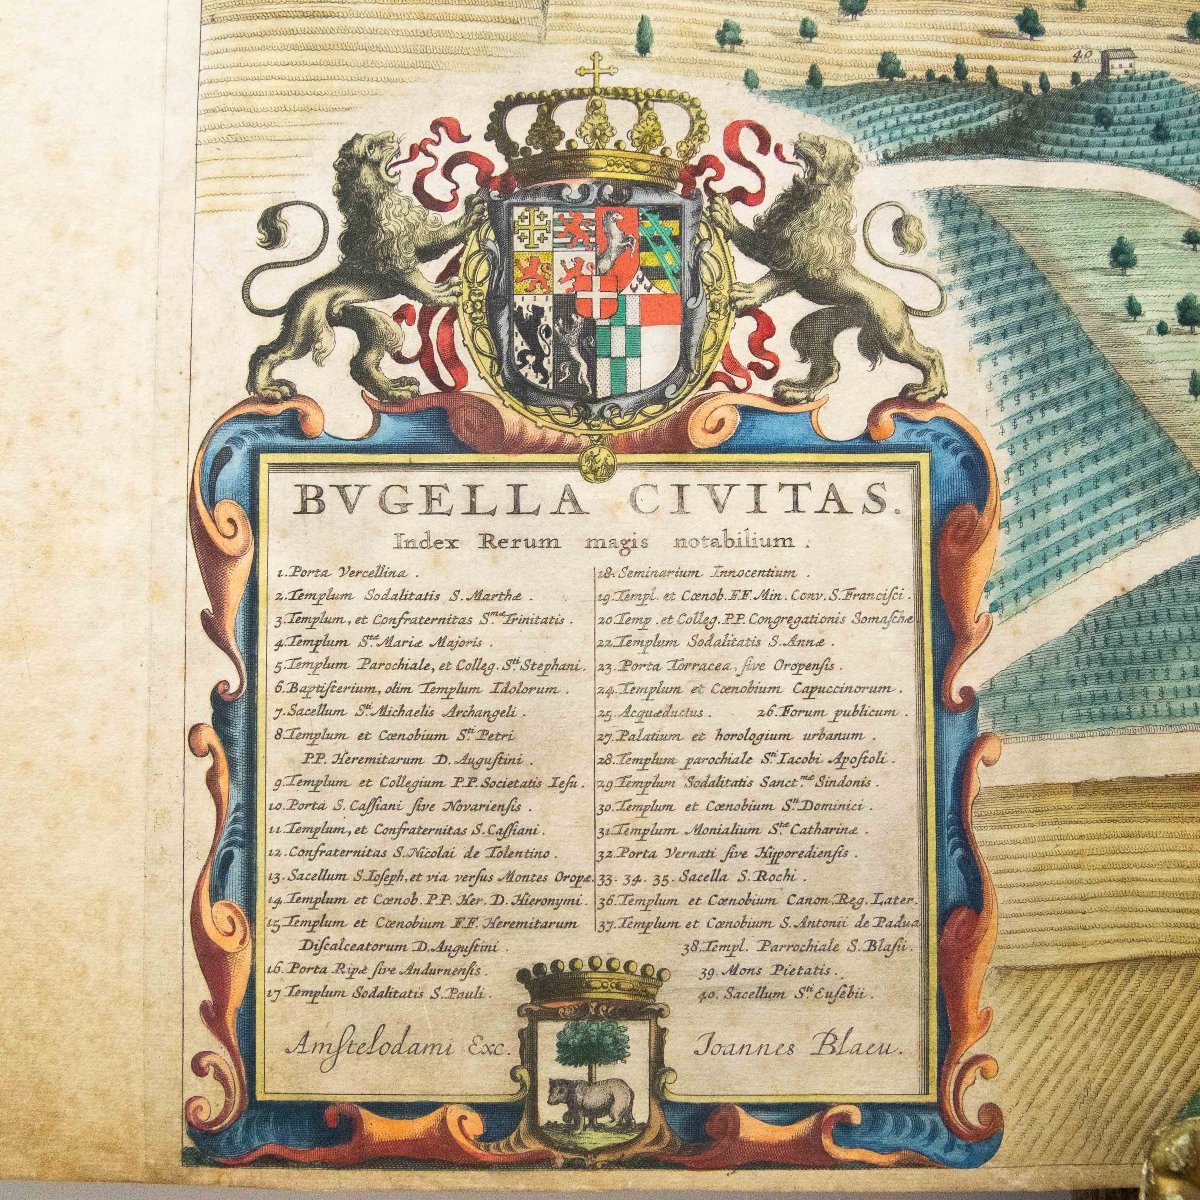 40
BVGELLA CIVITAS.
Index Rerum magis notabilium.
1. Porta Vercellina.
2. Templum Sodalitatis S. Marthæ.
3. Templum, et Confraternitas S.mæ Trinitatis.
4. Templum S.tæ Mariæ Majoris.
5. Templum Parochiale, et Colleg. S.ti Stephani.
6. Baptisterium, olim Templum Idolorum.
7. Sacellum S.ti Michaelis Archangeli.
8. Templum et Cœnobium S.ti Petri
PP. Heremitarum D. Augustini.
9. Templum et Collegium P.P. Societatis Iesu.
10. Porta S. Cassiani sive Novariensis.
11. Templum, et Confraternitas S. Cassiani.
12. Confraternitas S. Nicolai de Tolentino.
13. Sacellum S. Ioseph, et via versus Montes Oropæ.
14. Templum et Cœnob. P.P. Her. D. Hieronymi.
15. Templum et Cœnobium F.F. Heremitarum
Discalceatorum D. Augustini.
16. Porta Ripæ sive Andurnensis.
17. Templum Sodalitatis S. Pauli.
18. Seminarium Innocentium.
19. Templ. et Cœnob. F.F. Min. Conv. S. Francisci.
20. Temp. et Colleg. P.P. Congregationis Somaschæ
22. Templum Sodalitatis S. Annæ.
23. Porta Torracea, sive Oropensis.
24. Templum et Cœnobium Capuccinorum.
25. Acquæductus. 26. Forum publicum.
27. Palatium et horologium urbanum.
28. Templum parochiale S.ti Iacobi Apostoli.
29. Templum Sodalitatis Sanct.mæ Sindonis.
30. Templum et Cœnobium S.ti Dominici.
31. Templum Monialium S.tæ Catharinæ.
32. Porta Vernati sive Hyporediensis.
33. 34. 35. Sacella S. Rochi.
36. Templum et Cœnobium Canon. Reg. Later.
37. Templum et Cœnobium S. Antonii de Padua
38. Templ. Parrochiale S. Blasii.
39. Mons Pietatis.
40. Sacellum S.ti Eusebii.
Amstelodami Exc. Ioannes Blaeu.